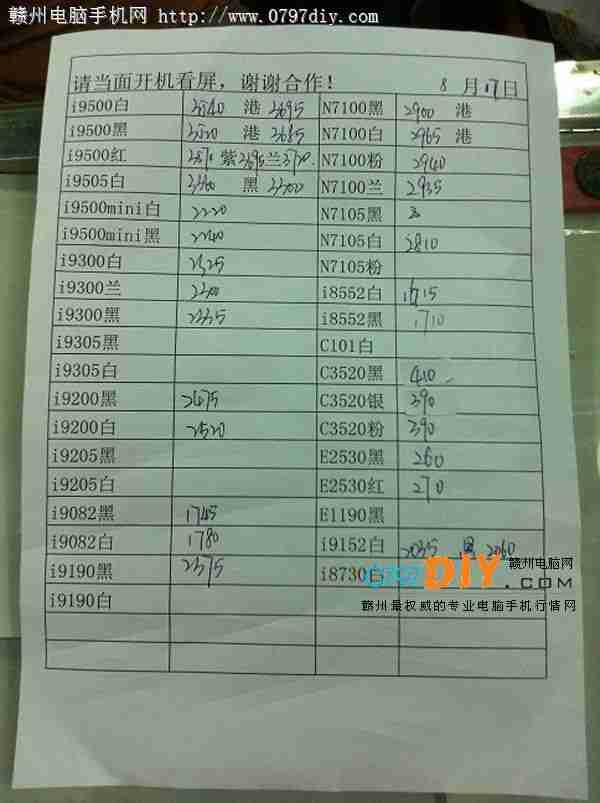 赣州电脑手机网 http://www.0797diy.com
请当面开机看屏，谢谢合作！ 8 月 17 日
i9500白 港 3695 N7100黑 2900 港
i9500黑 港 3685 N7100白 2965 港
i9500红 紫 3695 兰 N7100粉 2940
i9505白 黑 3300 N7100兰 2935
i9500mini白 2220 N7105黑
i9500mini黑 2240 N7105白 2810
i9300白 2325 N7105粉
i9300兰 2300 i8552白 1715
i9300黑 2335 i8552黑 1710
i9305黑 C101白
i9305白 C3520黑 410
i9200黑 2675 C3520银 390
i9200白 2520 C3520粉 390
i9205黑 E2530黑 260
i9205白 E2530红 270
i9082黑 1745 E1190黑
i9082白 1780 i9152白 2035 黑 2060
i9190黑 2375 i8730白
i9190白
0797DIY.COM 赣州电脑网
赣州最权威的专业电脑手机行情网